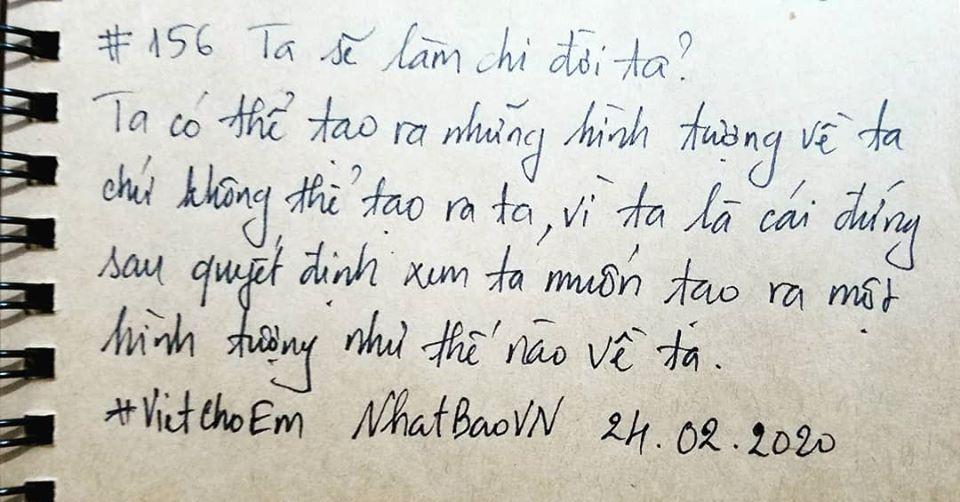 #156 Ta sẽ làm chi đời ta?
Ta có thể tạo ra những hình tượng về ta
chứ không thể tạo ra ta, vì ta là cái đứng
sau quyết định xem ta muốn tạo ra một
hình tượng như thế nào về ta.
#VietChoEm NhatBaoVN 24.02.2020